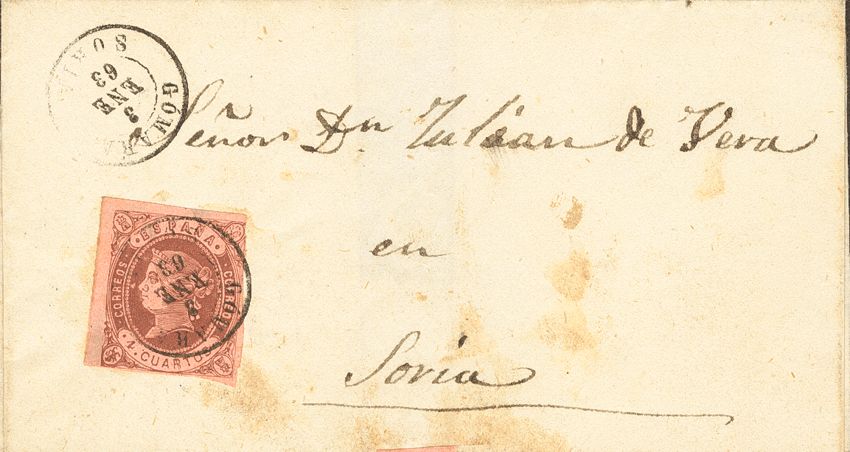 GÓMARA
3
ENE
63
SORIA
Señor Dn Julian de Vera
en
Soria
ESPAÑA
CORREOS
4. CUARTOS.
3
ENE
63